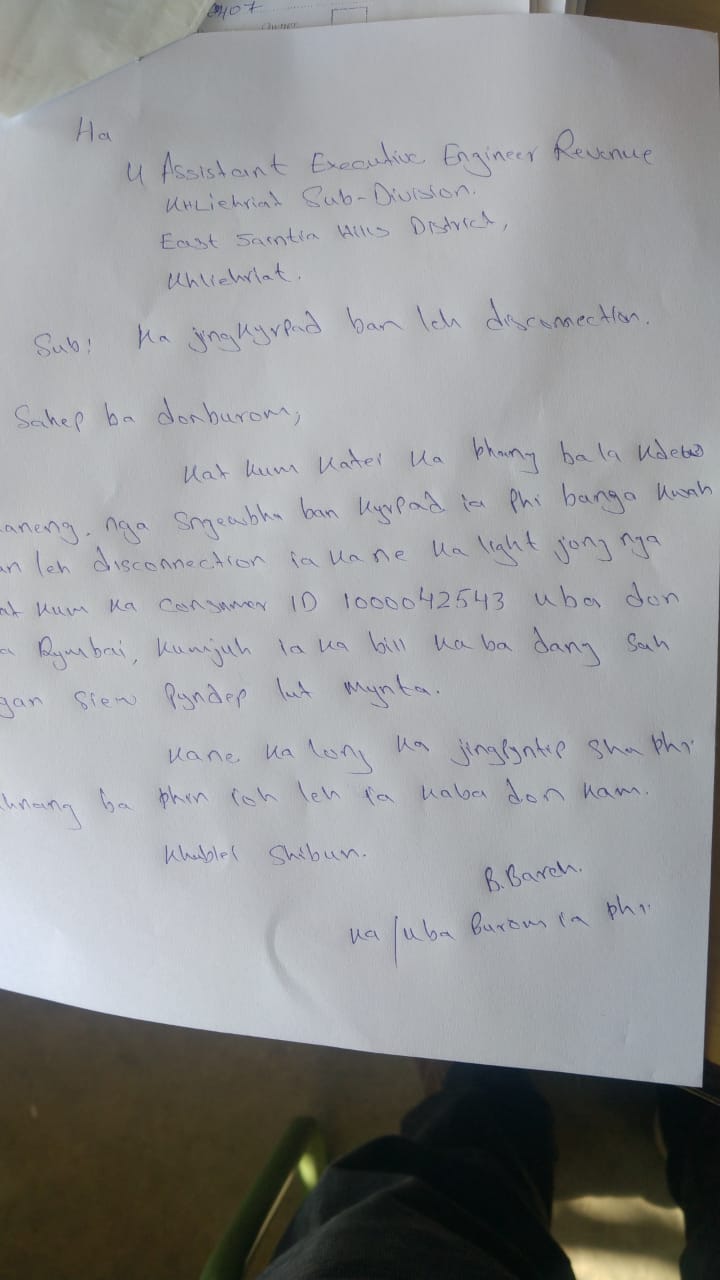 9407
Owner
Ha
U Assistant Executive Engineer Revenue
Khliehriat Sub-Division.
East Jaintia Hills District,
Khliehriat.
Sub: Ka jingkyrpad ban leh disconnection.
Sahep ba donburom,
Kat kum katei ka phang bala kdew
aneng. nga sngewbha ban kyrpad ia phi banga kwah
an leh disconnection ia kane ka light jong nga
at kum ka consumer ID 1000042543 uba don
Rymbai, kumjuh ia ka bill kaba dang sah
gan siew pyndep lut mynta.
Kane ka long ka jingpyntip sha phi
khnang ba phin ioh leh ia kaba don kam.
Khublei Shibun.
B. Bareh.
ka/uba burom ia phi.